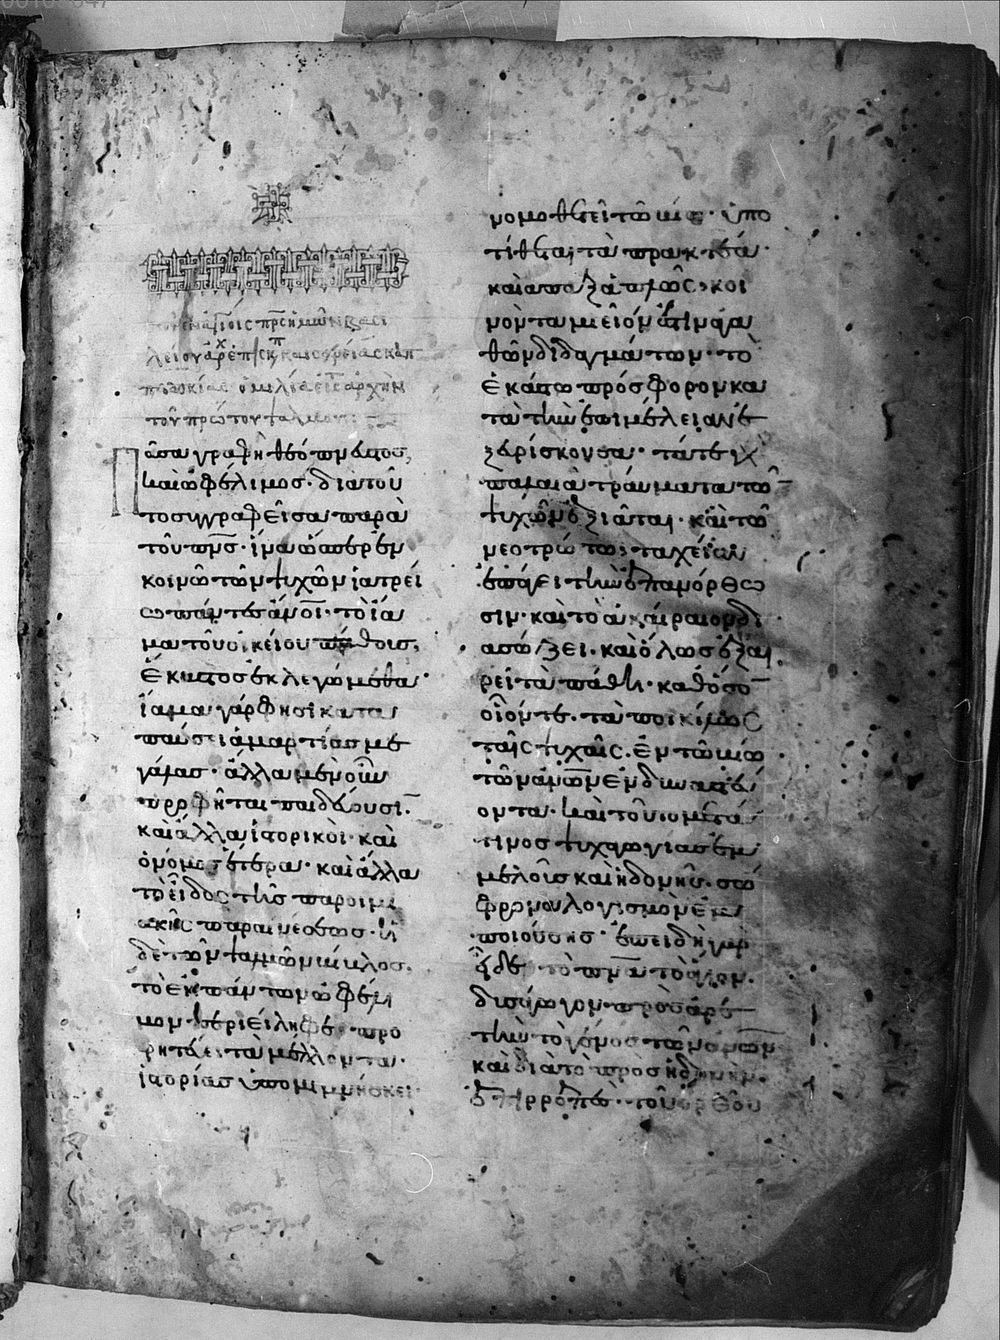 τοῦ ἐν ἁγίοις πρς ἡμῶν βασι
λείου ἀρχεπισκ καισαρείας καπ
παδοκίας ὁμιλία εἰς τ ἀρχὴν
τοῦ πρώτου ψαλμοῦ:
Πᾶσα γραφὴ θεόπνευστος,
καὶ ὠφέλιμος· διατοῦ
το συγγραφεῖσα παρὰ
τοῦ πνς· ἵν' ὥσπερ ἐν
κοινῶ τῶν ψυχῶν ἰατρεί
ω πάντες ἄνοι· τὸ ἴα
μα τοῦ οἰκείου πάθους,
ἕκαστος ἐκλεγώμεθα·
ἴαμα γάρ φησι κατα
παύσει ἁμαρτίας με
γάλας· ἄλλα μὲν οὖν
προφῆται παιδεύουσι·
καὶ ἄλλα ἱστορικοί· καὶ
ὁ νόμος ἕτερα· καὶ ἄλλα
τὸ εἶδος τῆς παροιμι
ακῆς παραινέσεως· ἡ
δὲ τῶν ψαλμῶν βίβλος,
τὸ ἐκ πάντων ὠφέλι
μον περιείληφε· προ
φητεύει τὰ μέλλοντα·
ἱστορίας ὑπομιμνήσκει·
νομοθετεῖ τῶ βίω· ὑπο
τίθεται τὰ πρακτέα·
καὶ ἁπαξαπλῶς, κοι
νὸν ταμιεῖόν ἐστιν ἀγα
θῶν διδαγμάτων· τὸ
ἑκάστω πρόσφορον κα
τὰ τὴν ἐπιμέλειαν ἐ
ξευρίσκουσα· τά τε γὰρ
παλαιὰ τραύματα τῶν
ψυχῶν ἐξιᾶται· καὶ τῶ
νεοτρώτω ταχεῖαν
ἐπάγει τὴν ἐπανόρθω
σιν· καὶ τὸ ἀκέραιον δι
ασώζει· καὶ ὅλως ἐξαι
ρεῖ τὰ πάθη· καθόσον
οἷόν τε. τὰ ποικίλως
ταῖς ψυχαῖς. ἐν τῶ βίω
τῶν ἀνων ἐνδυναστεύ
οντα· καὶ τοῦτο μετά
τινος ψυχαγωγίας ἐμ
μελοῦς καὶ ἡδονῆς. σώ
φρονα λογισμὸν ἐμ
ποιούσης· ἐπειδὴ γὰρ
εἶδε τὸ πνα τὸ ἅγιον.
δυσάγωγον πρὸς ἀρε
τὴν τὸ γένος τῶν ανων
καὶ διὰ τὸ πρὸς ἡδονὴν.
ἐπιρρεπὲς· τοῦ ὀρθοῦ